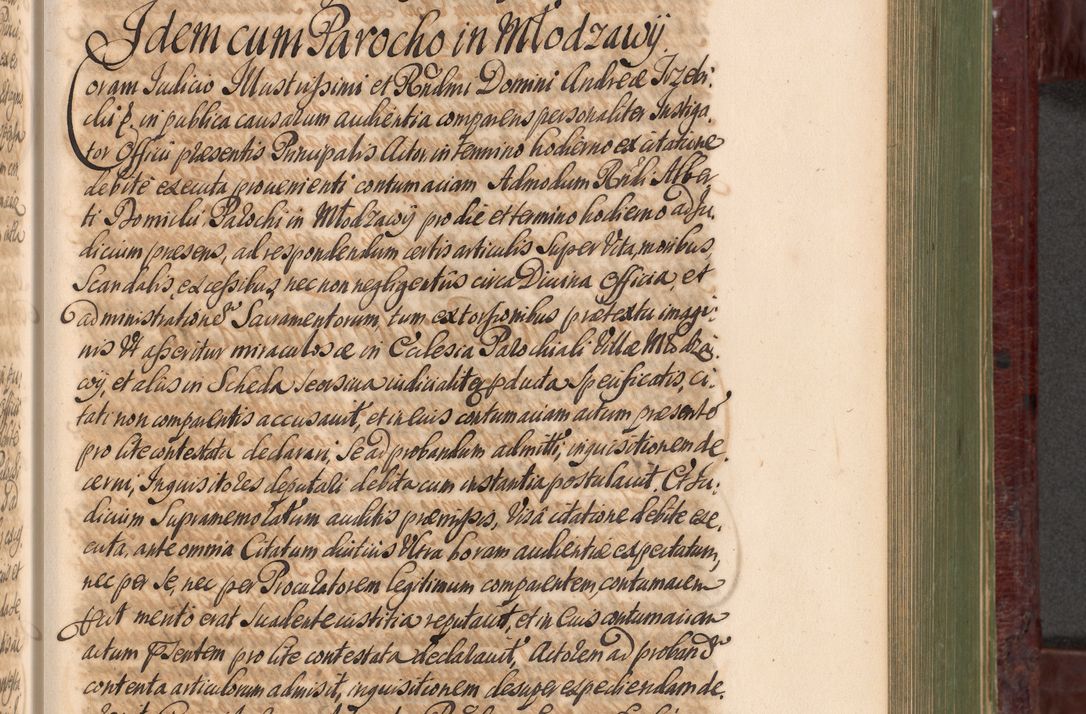 Idem cum Parocho in Młodzawÿ.
Coram Iudicio Illustrissimi et Rñdmi Domini Andreæ Trzebi:
cki &, in publica causarum audientia comparens personaliter Instiga,
tor Officii præsentis Principalis Actor in termino hodierno ex citatione
debitè executa provenienti contumaciam Admodum Rñdi Alber,
ti Domicki Parochi in Młodzawÿ pro die et termino hodierno ad Ju,
dicium præsens, ad respondendum certis articulis super Vita, moribus,
Scandalis, excessibus, nec non negligentiis circa Divina Officia, et
administratione Sacramentorum, tum extorsionibus prætextu imagi:
nis Vt asseritur miraculosæ in Ecclesia Parochiali Villæ Młodza,
wÿ, et aliis in Scheda seorsiva iudicialiter pducta specificatis, ci,
tati non comparentis accusavit, et in eius contumaciam actum præsentē
pro lite contestata declarari, se ad probandum admitti, inquisitionem de,
cerni, Inquisitores deputari debita cum instantia postulavit. Et Iu,
dicium Supramemoratum auditis præmissis, Visâ citatione debitè exe,
cuta, ante omnia Citatum diutius Vltra horam audientiæ expectatum,
nec per se, nec per Procuratorem legitimum comparentem, contumacem
prout merito erat suadente iustitia reputavit, et in eius contumaciam
actum psentem pro lite contestata declaravit, Actorem ad probandū
contenta articulorum admisit, inquisitionem desuper expediendam de,